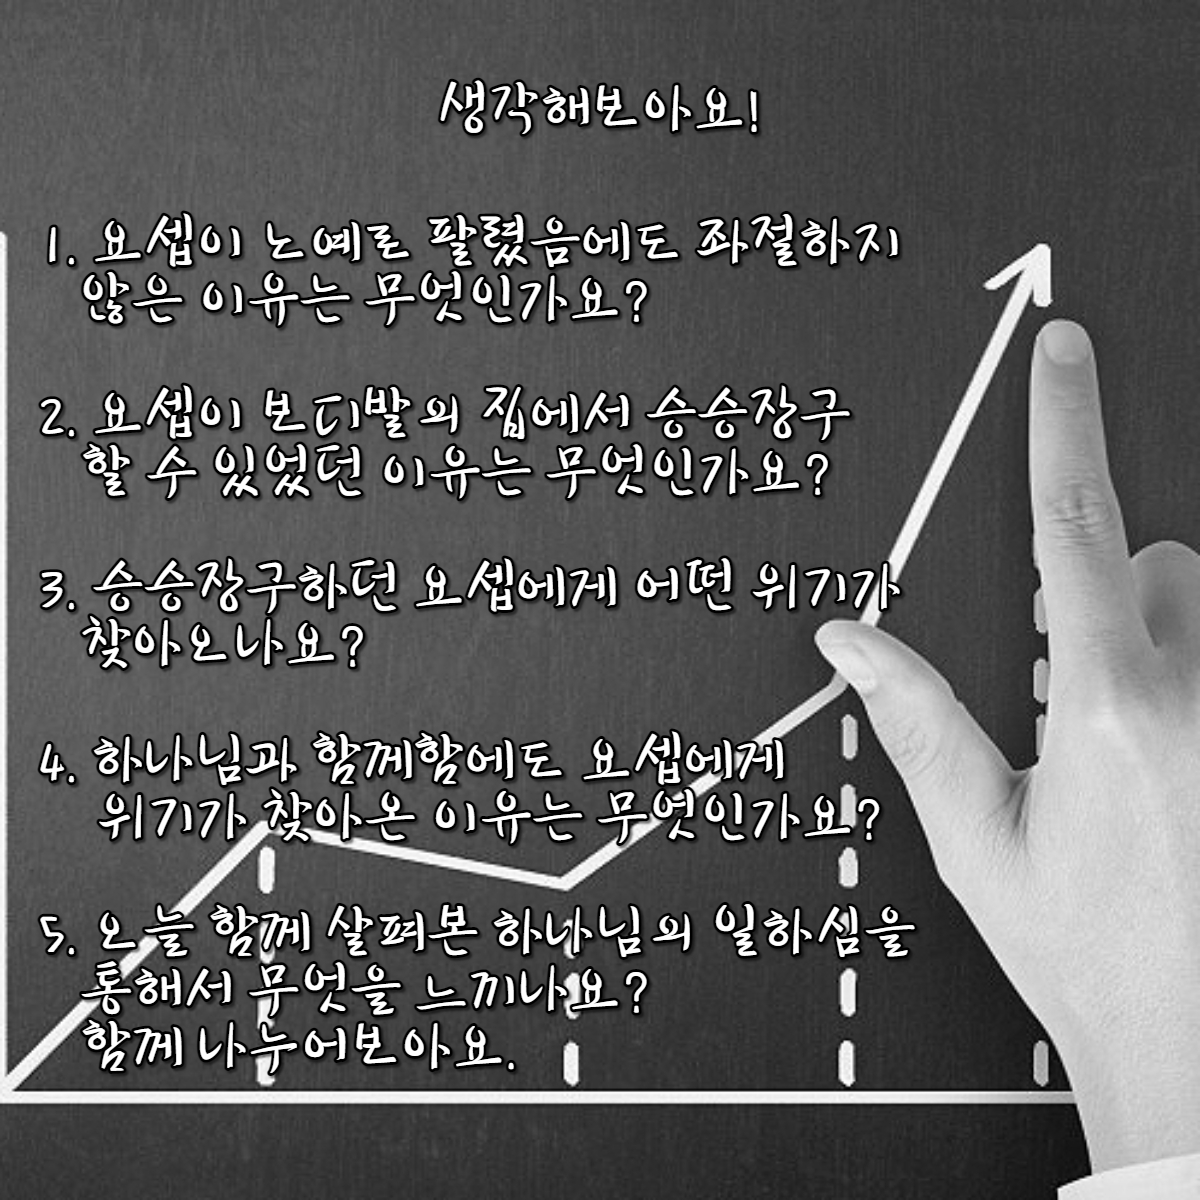 생각해보아요!
1. 요셉이 노예로 팔렸음에도 좌절하지
않은 이유는 무엇인가요?
2. 요셉이 보디발의 집에서 승승장구
할 수 있었던 이유는 무엇인가요?
3. 승승장구하던 요셉에게 어떤 위기가
찾아오나요?
4. 하나님과 함께함에도 요셉에게
위기가 찾아온 이유는 무엇인가요?
5. 오늘 함께 살펴본 하나님의 일하심을
통해서 무엇을 느끼나요?
함께 나누어보아요.